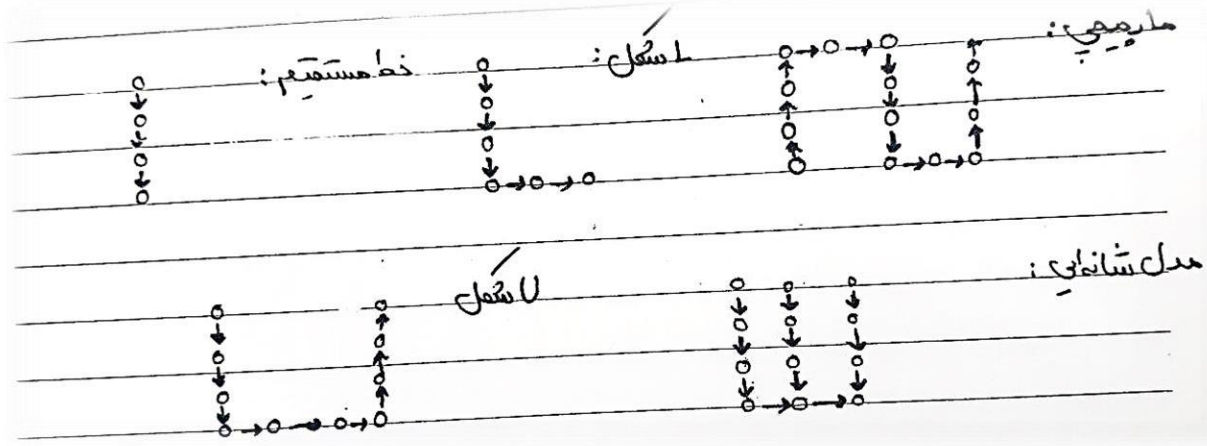 مارپیچی: L شکل: خط مستقیم:
مدل شانه‌ایی: U شکل